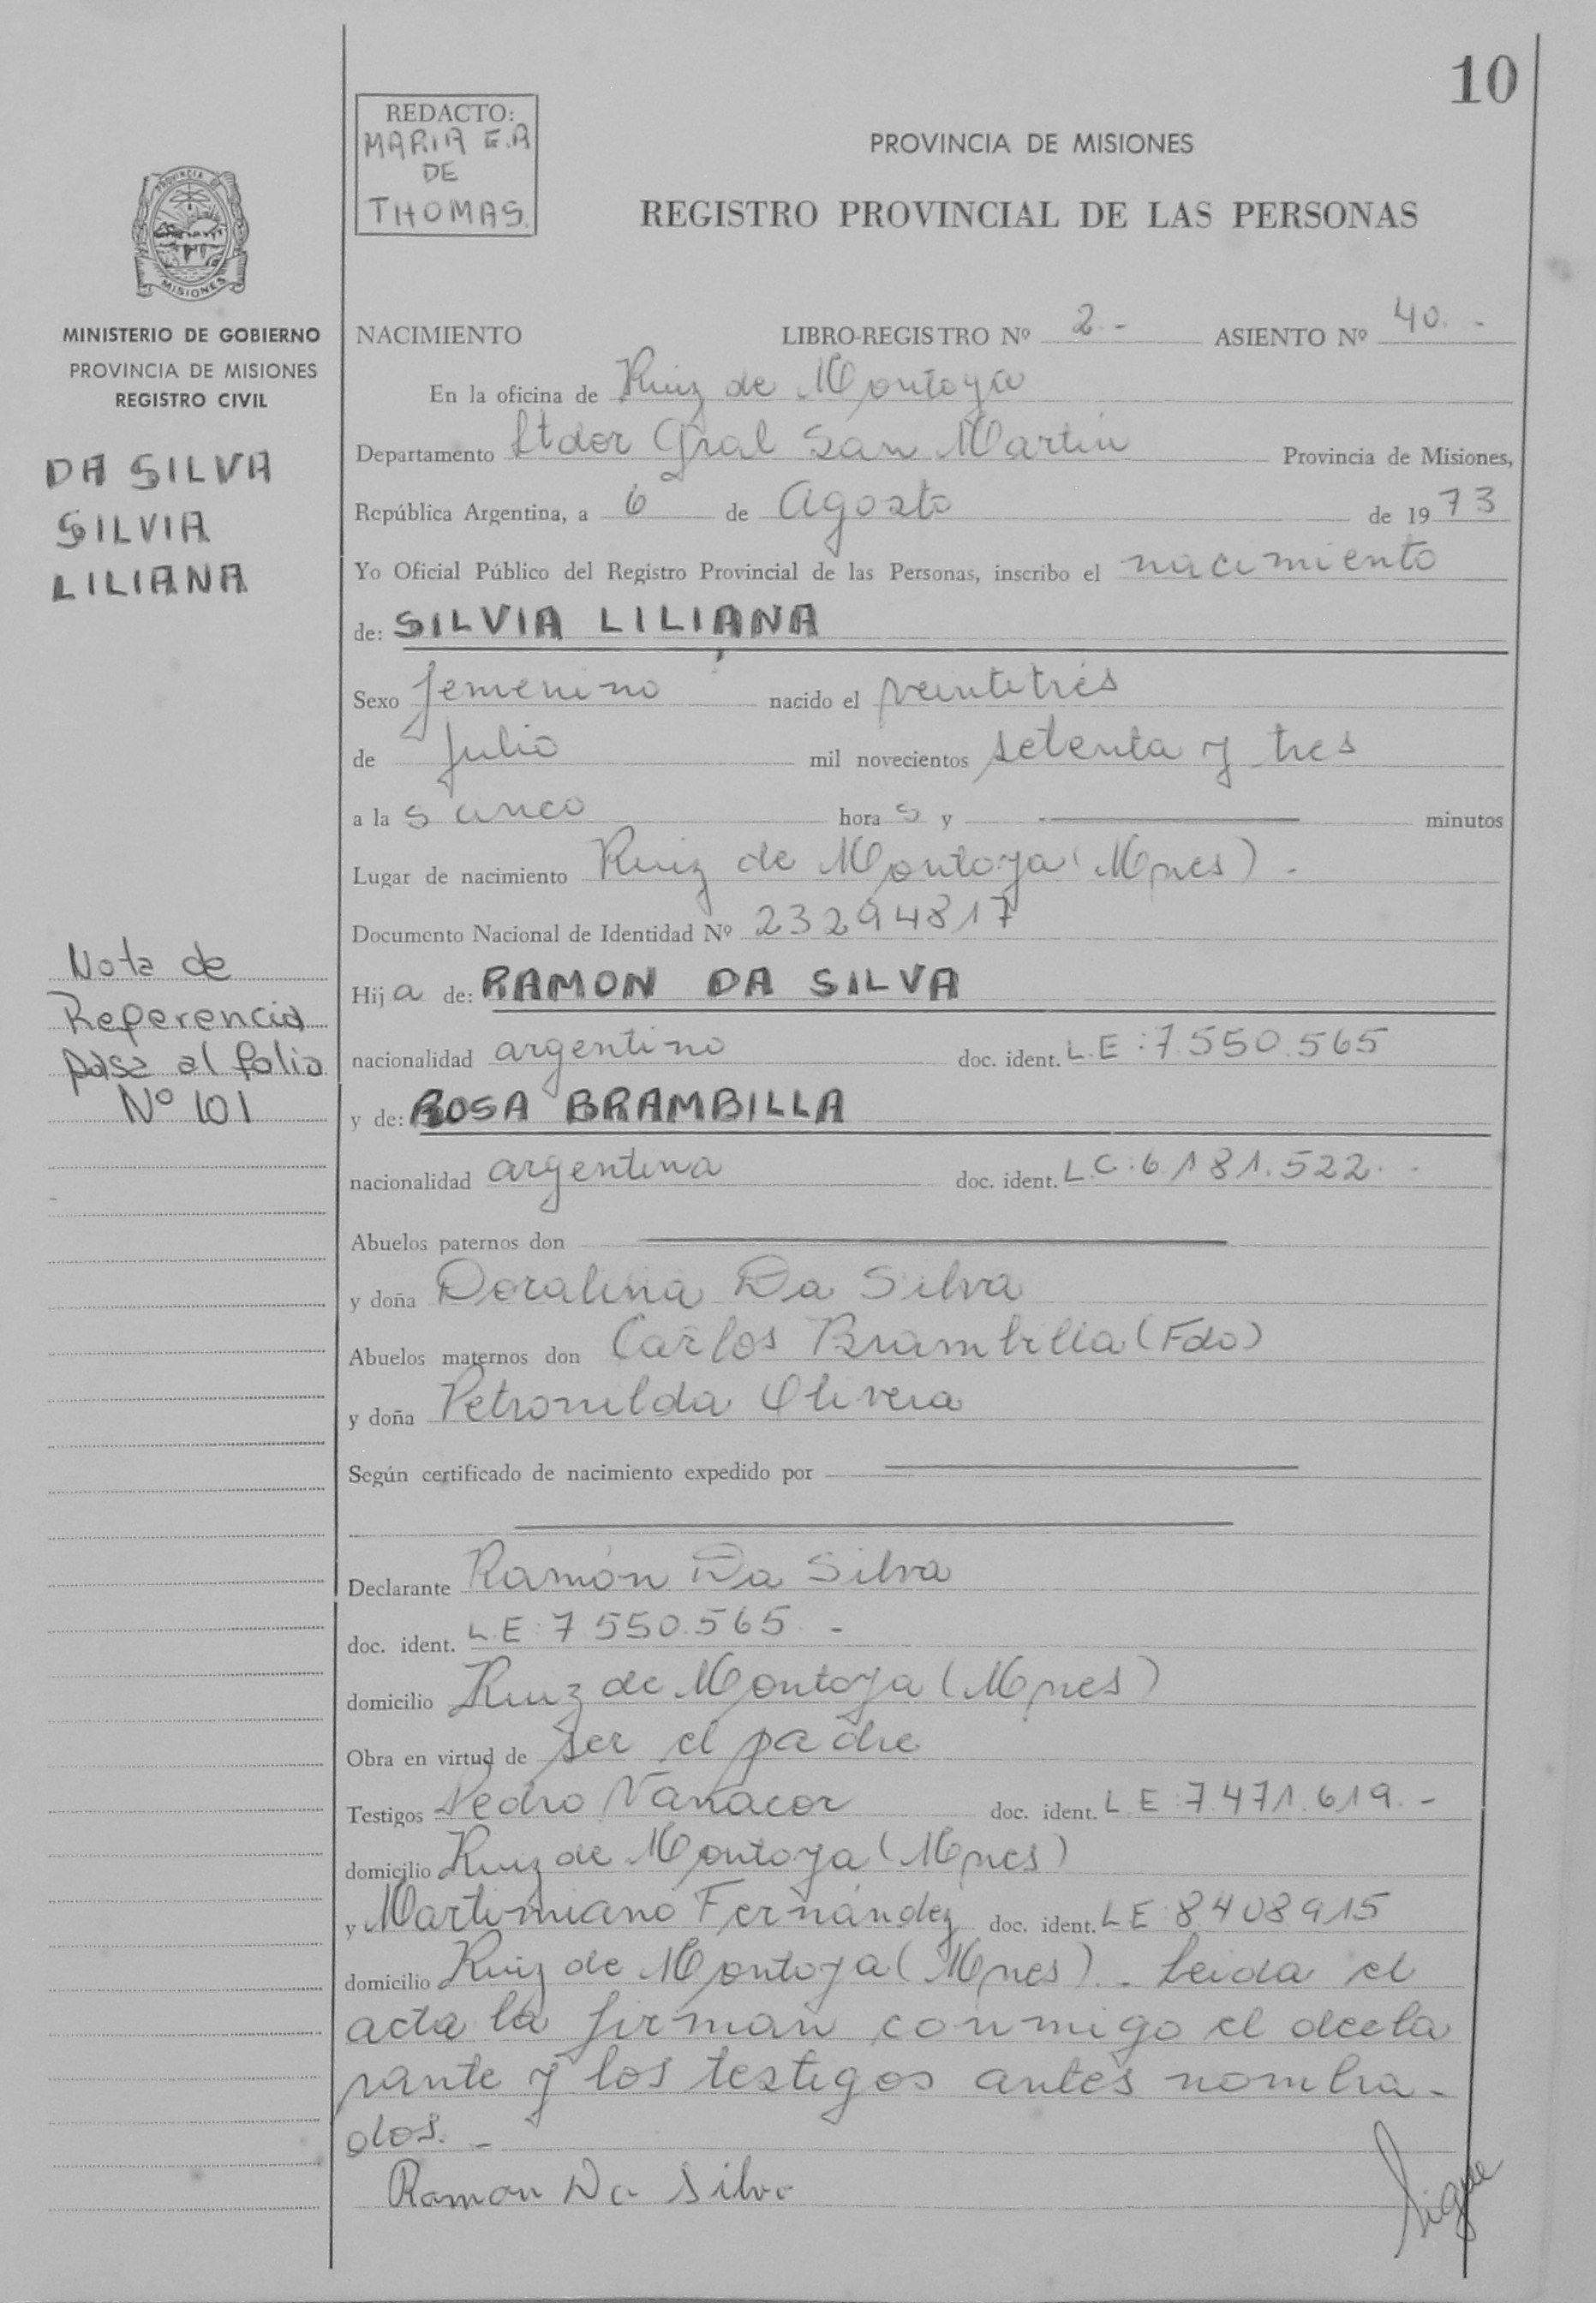 10
REDACTO:
MARIA E.A
DE
THOMAS.
PROVINCIA DE MISIONES
REGISTRO PROVINCIAL DE LAS PERSONAS
PROVINCIA DE
MISIONES
MINISTERIO DE GOBIERNO
PROVINCIA DE MISIONES
REGISTRO CIVIL
DA SILVA
SILVIA
LILIANA
Nota de
Referencia
pasa al folio
Nº 101
NACIMIENTO LIBRO-REGISTRO Nº 2.- ASIENTO Nº 40.-
En la oficina de Ruiz de Montoya
Departamento Ltdor Gral San Martín Provincia de Misiones,
República Argentina, a 6 de Agosto de 1973
Yo Oficial Público del Registro Provincial de las Personas, inscribo el nacimiento
de: SILVIA LILIANA
Sexo femenino nacido el veintitrés
de Julio mil novecientos setenta y tres
a las cinco horas y minutos
Lugar de nacimiento Ruiz de Montoya (Mnes).
Documento Nacional de Identidad Nº 23294817
Hija de: RAMON DA SILVA
nacionalidad argentino doc. ident. L.E:7.550.565
y de: ROSA BRAMBILLA
nacionalidad argentina doc. ident. L.C:6.181.522.-
Abuelos paternos don
y doña Doralina Da Silva
Abuelos maternos don Carlos Brambilla (Fdo)
y doña Petronilda Olivera
Según certificado de nacimiento expedido por
Declarante Ramón Da Silva
doc. ident. L.E:7.550.565.-
domicilio Ruiz de Montoya (Mnes)
Obra en virtud de ser el padre
Testigos Pedro Vanacor doc. ident. L.E:7.471.619.-
domicilio Ruiz de Montoya (Mnes)
y Martimiano Fernández doc. ident. L E:8408915
domicilio Ruiz de Montoya (Mnes).- Leida el
acta la firman conmigo el decla
rante y los testigos antes nombra-
dos.-
Ramon Da Silva
Sigue